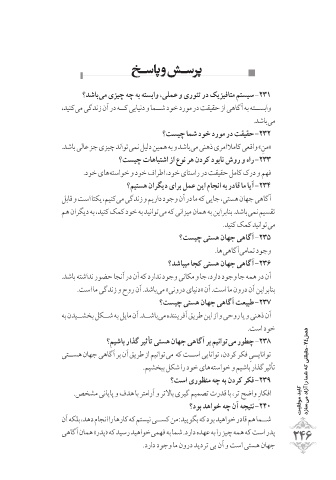 پرسش و پاسخ
۲۳۱- سیستم متافیزیک در تئوری و عملی، وابسته به چه چیزی می‌باشد؟
وابسته به آگاهی از حقیقت در مورد خود شما و دنیایی که در آن زندگی می‌کنید،
می‌باشد.
۲۳۲- حقیقت در مورد خود شما چیست؟
«من» واقعی کاملا امری ذهنی می‌باشد و به همین دلیل نمی‌تواند چیزی جز عالی باشد.
۲۳۳- راه و روش نابود کردن هر نوع از اشتباهات چیست؟
فهم و درک کامل حقیقت در راستای خود، اطراف خود و خواسته‌های خود.
۲۳۴- آیا ما قادر به انجام این عمل برای دیگران هستیم؟
آگاهی جهان هستی، جایی که ما در آن وجود داریم و زندگی می‌کنیم، یکتا است و قابل
تقسیم نمی‌باشد. بنابراین به همان میزانی که می‌توانید به خود کمک کنید، به دیگران هم
می‌توانید کمک کنید.
۲۳۵- آگاهی جهان هستی چیست؟
وجود تمامی آگاهی‌ها.
۲۳۶- آگاهی جهان هستی کجا میباشد؟
آن در همه جا وجود دارد، جا و مکانی وجود ندارد که آن در آنجا حضور نداشته باشد.
بنابراین آن درون ما است. آن «دنیای درونی» می‌باشد. آن روح و زندگی ما است.
۲۳۷- طبیعت آگاهی جهان هستی چیست؟
آن ذهنی و یا روحی و از این طریق آفریننده می‌باشد. آن مایل به شکل بخشیدن به
خود است.
۲۳۸- چطور می‌توانیم بر آگاهی جهان هستی تأثیر گذار باشیم؟
توانایی فکر کردن، توانایی است که می‌توانیم از طریق آن بر آگاهی جهان هستی
تأثیر گذار باشیم و خواسته‌های خود را شکل ببخشیم.
۲۳۹- فکر کردن به چه منظوری است؟
افکار واضح تر، با قدرت تصمیم گیری بالاتر و آرام‌تر با هدف و پایانی مشخص.
۲۴۰- نتیجه آن چه خواهد بود؟
شما هم قادر خواهید بود که بگویید: من کسی نیستم که کارها را انجام دهد، بلکه آن
پدر است که همه چیز را به عهده دارد. شما به فهمی خواهید رسید که «پدر» همان آگاهی
جهان هستی است و آن بی تردید درون ما وجود دارد.
کلید موفقیت
۲۴۶